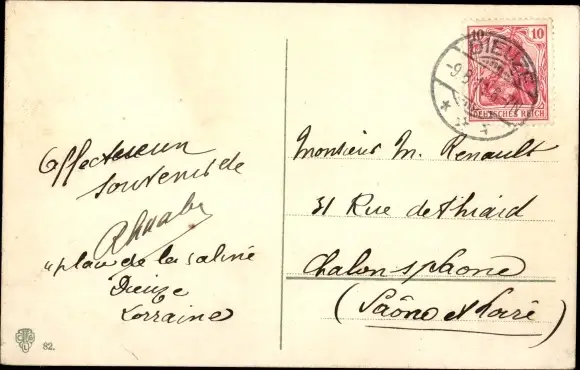 Affectueux
souvenir de
place de la Saline
Dieuze
Lorraine
82.
10 10
DIEUZE
DEUTSCHES REICH
Monsieur M. Renault
31 Rue de Thiard
Chalon s/ Saône
(Saône et Loire)